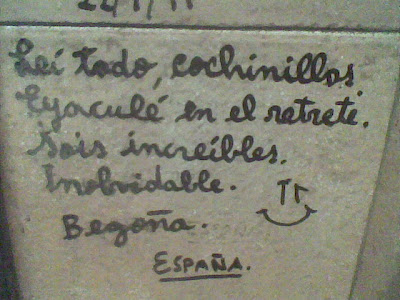 Leí todo, cochinillos
Eyaculé en el retrete.
Sois increíbles.
Inolvidable.
Begoña.
ESPAÑA.